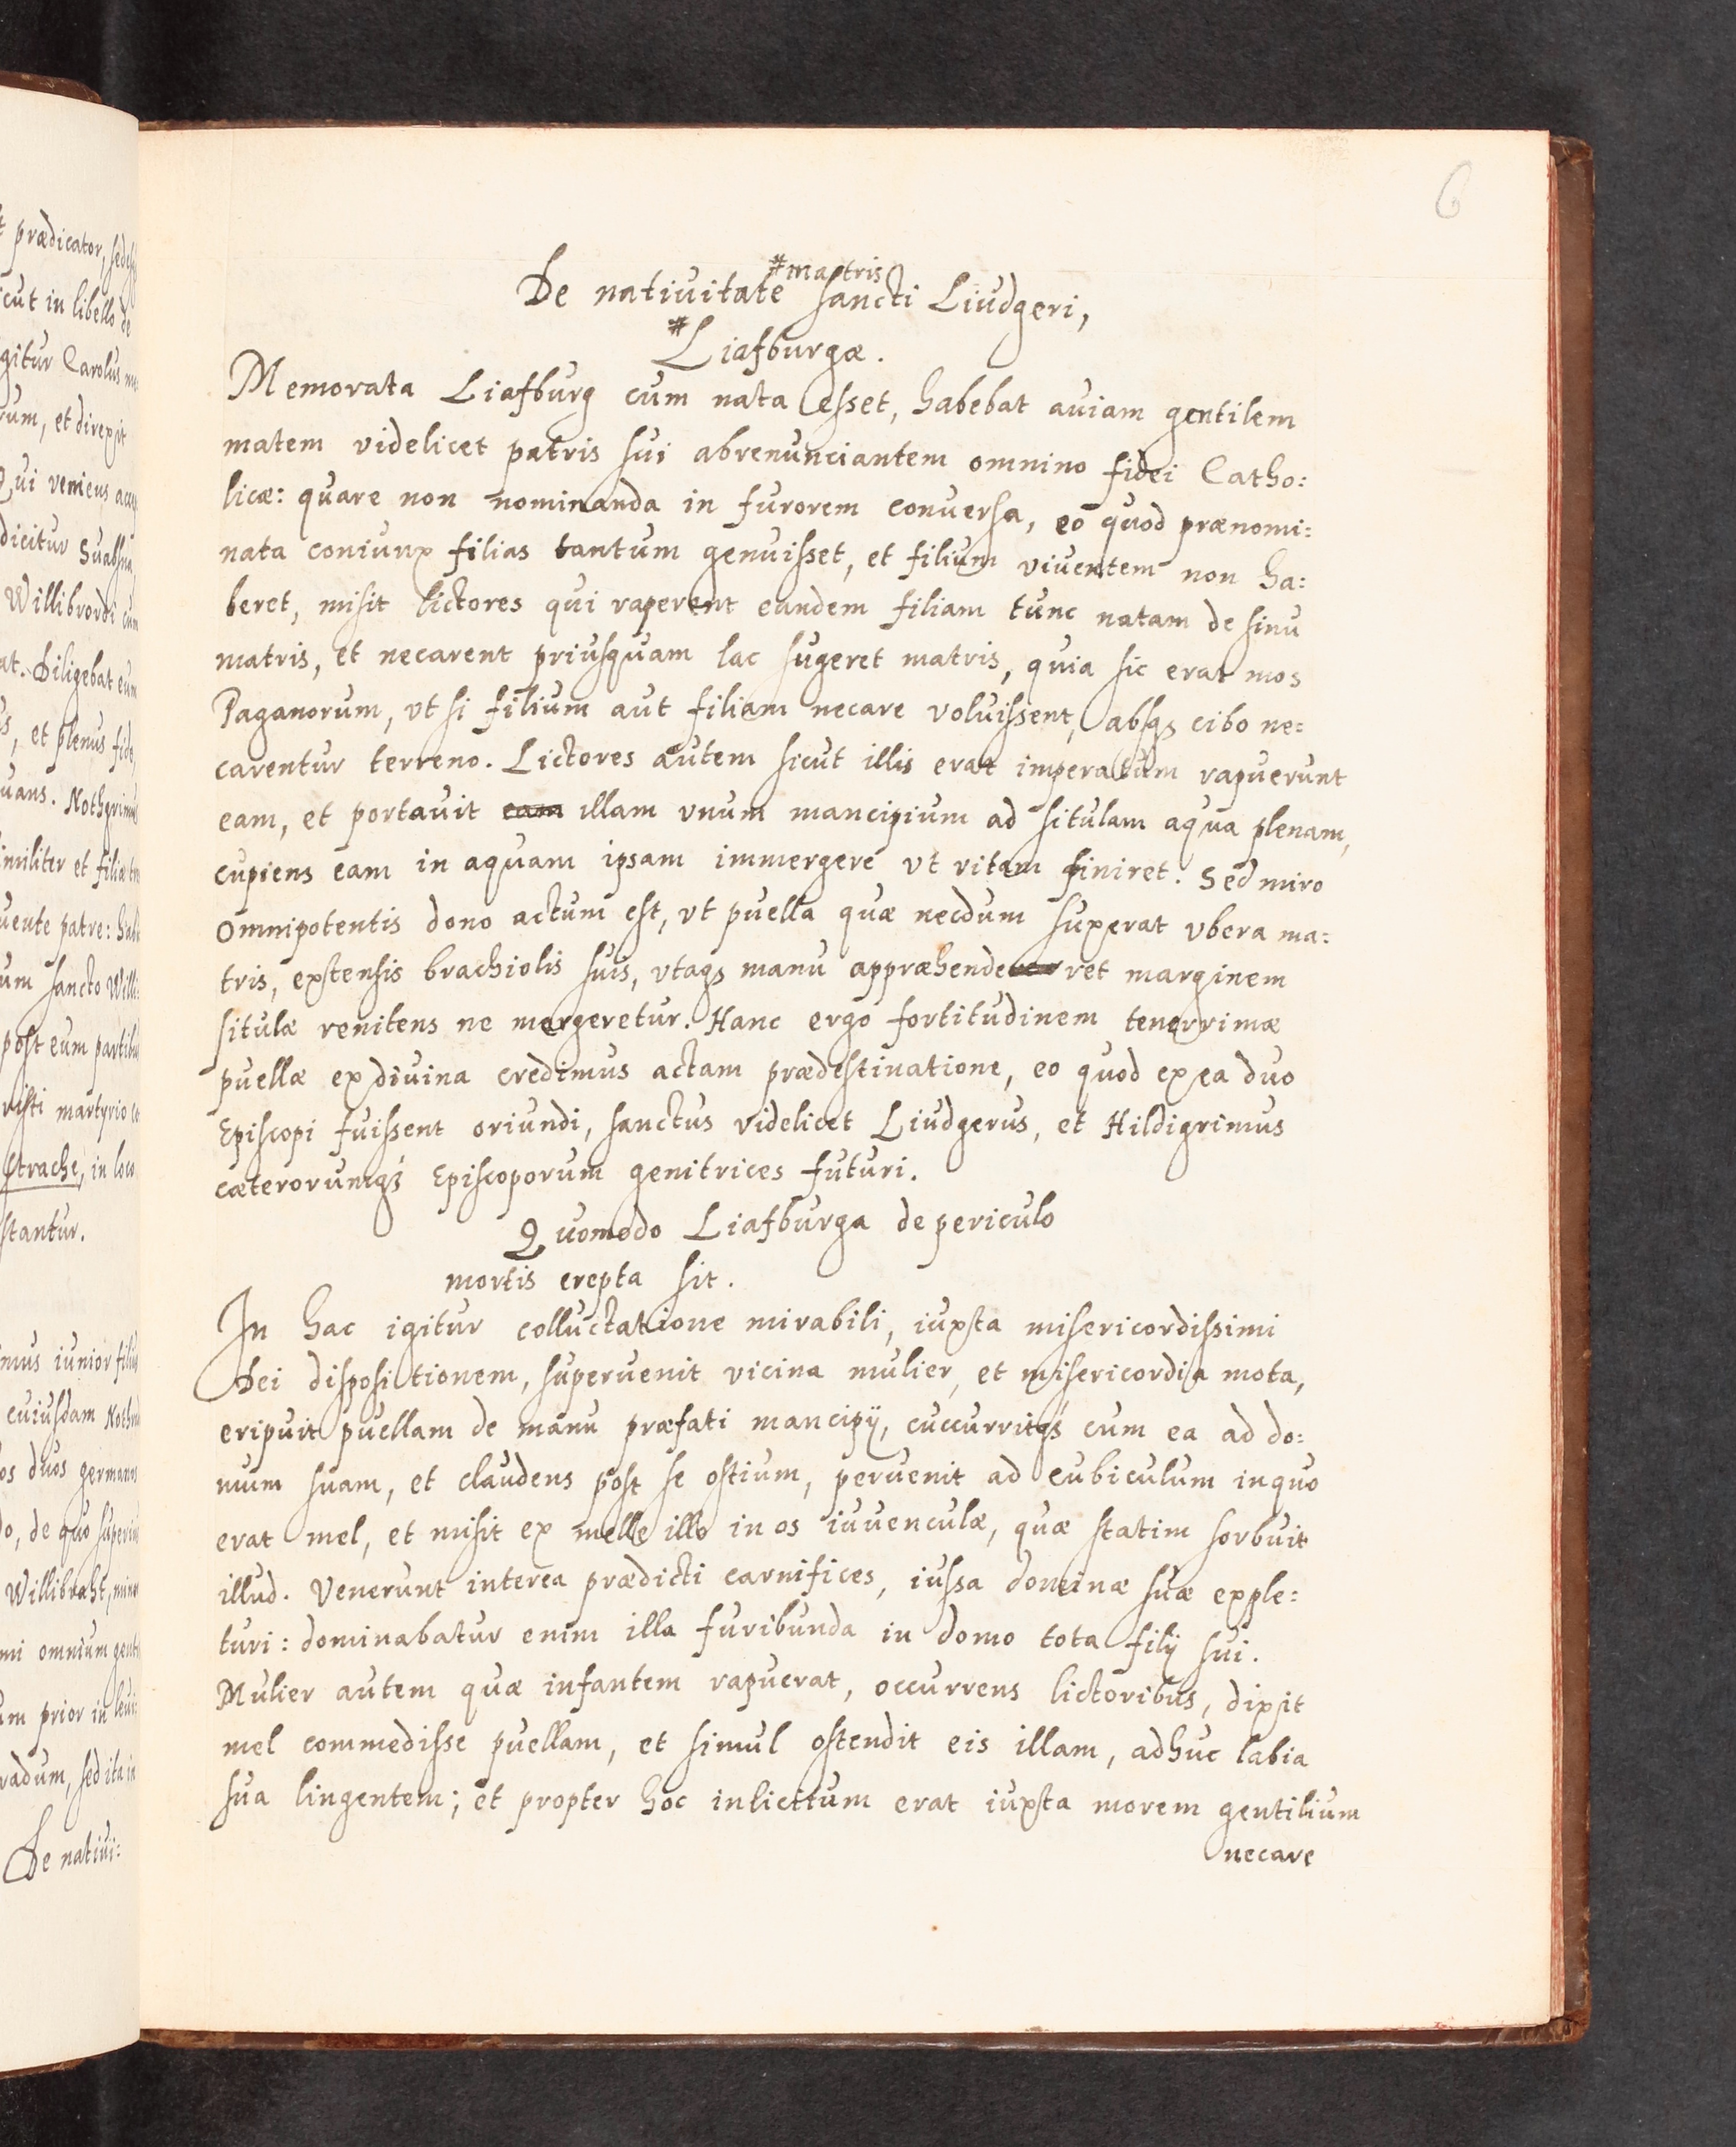 6
De natiuitate #matris sancti Liudgeri,
#Liafburgæ.
Memorata Liafburg cum nata esset, habebat auiam gentilem
matem videlicet patris sui abrenunciantem omnino fidei Catho:
licæ: quare non nominanda in furorem conuersa, eo quod prænomi:
nata coniunx filias tantum genuisset, et filium viuentem non ha:
beret, misit lictores qui raperent eandem filiam tunc natam de sinu
matris, et necarent priusquam lac sugeret matris, quia sic erat mos
Paganorum, vt si filium aut filiam necare voluissent, absqs cibo ne:
carentur terreno. Lictores autem sicut illis erat imperatum rapuerunt
eam, et portauit eam illam vnum mancipium ad situlam aqua plenam,
cupiens eam in aquam ipsam immergere vt vitam finiret. Sed miro
omnipotentis dono actum est, vt puella quæ necdum suxerat vbera ma:
tris, extensis brachiolis suis, vtaqs manu appræhende ret marginem
situlæ renitens ne mergeretur. Hanc ergo fortitudinem tenerrimæ
puellæ ex divina credimus actam prædestinatione, eo quod ex ea duo
Episcopi fuissent oriundi, sanctus videlicet Liudgerus, et Hildigrimus
cæterorumqs Episcoporum genitrices futuri.
Quomodo Liafburga de periculo
mortis erepta sit.
In hac igitur colluctatione mirabili, iuxta misericordissimi
Dei dispositionem, superuenit vicina mulier, et misericordia mota,
eripuit puellam de manu præfati mancipÿ, cuccurritqs cum ea ad do:
mum suam, et claudens post se ostium, peruenit ad cubiculum in quo
erat mel, et misit ex melle illo in os iuuenculæ, quæ statim sorbuit
illud. Venerunt interea prædicti carnifices, iussa dominæ suæ exple:
turi: dominabatur enim illa furibunda in domo tota filÿ sui.
Mulier autem quæ infantem rapuerat, occurrens lictoribus, dixit
mel commedisse puellam, et simul ostendit eis illam, adhuc labia
sua lingentem; et propter hoc inlicitum erat iuxta morem gentilium
necare
t prædicator,
cut in libello de
gitur Carolus
rum, et direxit
Qui veniens
dicitur
Willibrordi cum
at. Diligebat eum
s, et plenus fide,
imiliter et filiæ
uente patre:
um sancto
post eum
risti martyrio
strache, in loco
stantur.
mus iunior
cuiusdam
os duos germanos
o, de quo
mi omnium
um prior in
radum, sed ita in
De natiui: